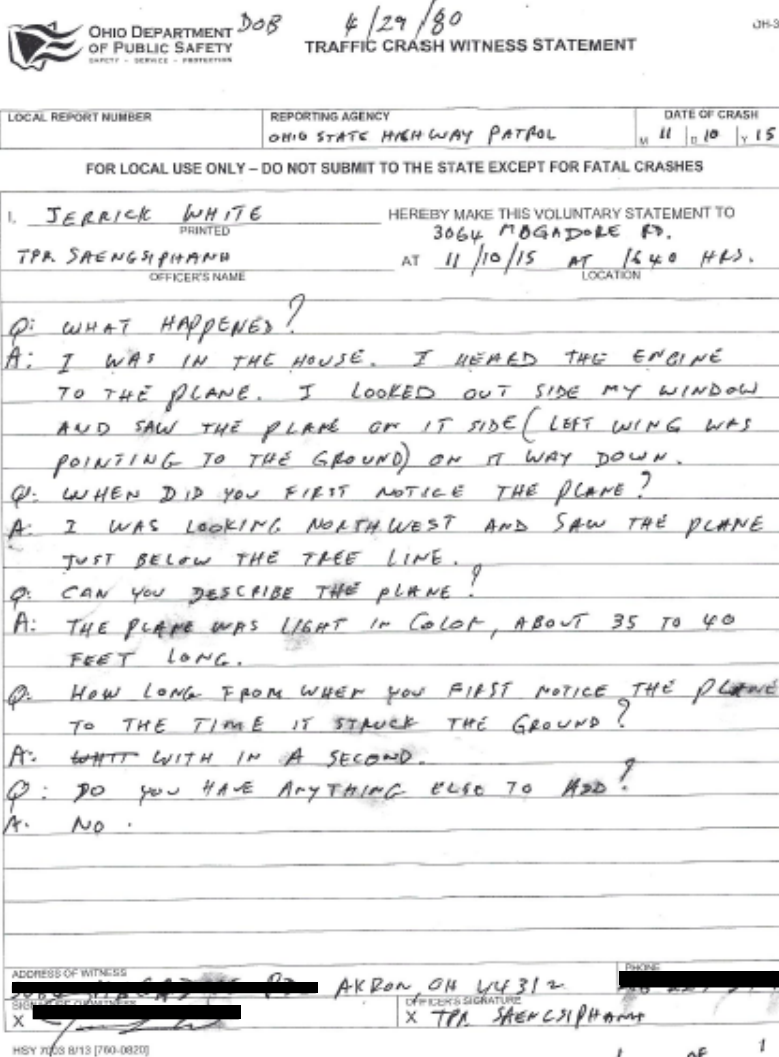 OHIO DEPARTMENT
OF PUBLIC SAFETY
SAFETY - SERVICE - PROTECTION
DOB 4/29/80
TRAFFIC CRASH WITNESS STATEMENT
OH-3
LOCAL REPORT NUMBER
REPORTING AGENCY
OHIO STATE HIGHWAY PATROL
DATE OF CRASH
M 11 D 10 Y 15
FOR LOCAL USE ONLY – DO NOT SUBMIT TO THE STATE EXCEPT FOR FATAL CRASHES
I, JERRICK WHITE HEREBY MAKE THIS VOLUNTARY STATEMENT TO
PRINTED
3064 MOGADORE RD.
TPR SAENGSIPHANH AT 11/10/15 AT 1640 HRS.
OFFICER'S NAME LOCATION
Q: WHAT HAPPENED?
A: I WAS IN THE HOUSE. I HEARD THE ENGINE
TO THE PLANE. I LOOKED OUT SIDE MY WINDOW
AND SAW THE PLANE ON IT SIDE (LEFT WING WAS
POINTING TO THE GROUND) ON IT WAY DOWN.
Q: WHEN DID YOU FIRST NOTICE THE PLANE?
A: I WAS LOOKING NORTHWEST AND SAW THE PLANE
JUST BELOW THE TREE LINE.
Q: CAN YOU DESCRIBE THE PLANE?
A: THE PLANE WAS LIGHT IN COLOR, ABOUT 35 TO 40
FEET LONG.
Q: HOW LONG FROM WHEN YOU FIRST NOTICE THE PLANE
TO THE TIME IT STRUCK THE GROUND?
A: WITH IN A SECOND.
Q: DO YOU HAVE ANYTHING ELSE TO ADD?
A: NO.
ADDRESS OF WITNESS
PHONE
AKRON, OH 44312
SIGNATURE OF WITNESS
X
OFFICER'S SIGNATURE
X TPR SAENGSIPHANH
HSY 7003 8/13 [760-0820]
1 OF 1